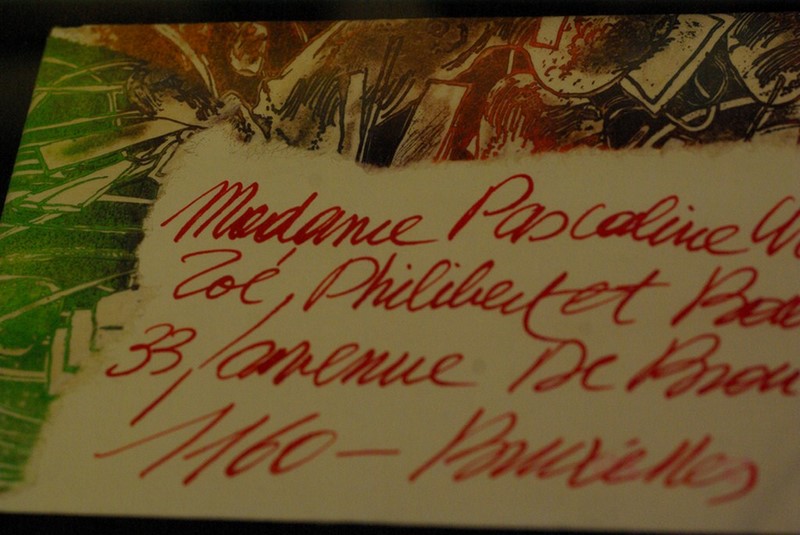 Madame Pascaline
Zoé, Philibert et
33, avenue De
1160 - Bruxelles